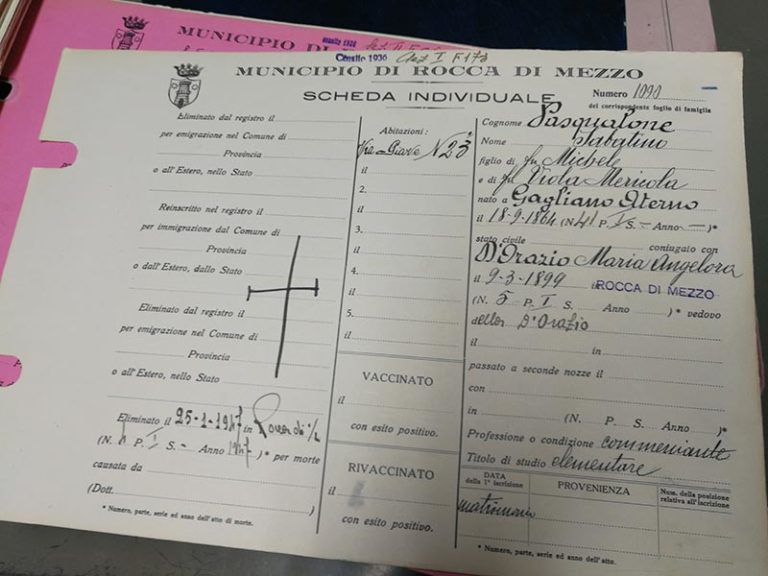 MUNICIPIO DI
Censito 1936
Censito 1936 Sez I F 173
MUNICIPIO DI ROCCA DI MEZZO
SCHEDA INDIVIDUALE
Numero 1090
del corrispondente foglio di famiglia
Eliminato dal registro il
per emigrazione nel Comune di
Provincia
o all'Estero, nello Stato
Reinscritto nel registro il
per immigrazione dal Comune di
Provincia
o dall'Estero, dallo Stato
Eliminato dal registro il
per emigrazione nel Comune di
Provincia
o all'Estero, nello Stato
Eliminato il 25-1-1947 in
(N. P. I S. - Anno 1947)* per morte
causata da
(Dott. )
* Numero, parte, serie ed anno dell'atto di morte.
Abitazioni:
Via Piave N 23
il
2.
il
3.
il
4.
il
5.
il
VACCINATO
il
con esito positivo.
RIVACCINATO
il
con esito positivo.
Cognome Pasqualone
Nome Sabatino
figlio di fu Michele
e di fu Viola Mericola
nato a Gagliano Aterno
il 18-9-1864 (N. 41 P. I S. - Anno - )*
stato civile coniugato con
D'Orazio Maria Angelora
il 9-3-1899 in ROCCA DI MEZZO
(N. 5 P. I S. Anno )* vedovo
della D'Orazio
il in
passato a seconde nozze il
con
in (N. P. S. Anno )*
Professione o condizione commerciante
Titolo di studio elementare
DATA della 1ª iscrizione
PROVENIENZA
Num. della posizione relativa all'iscrizione
* Numero, parte, serie ed anno dell'atto.